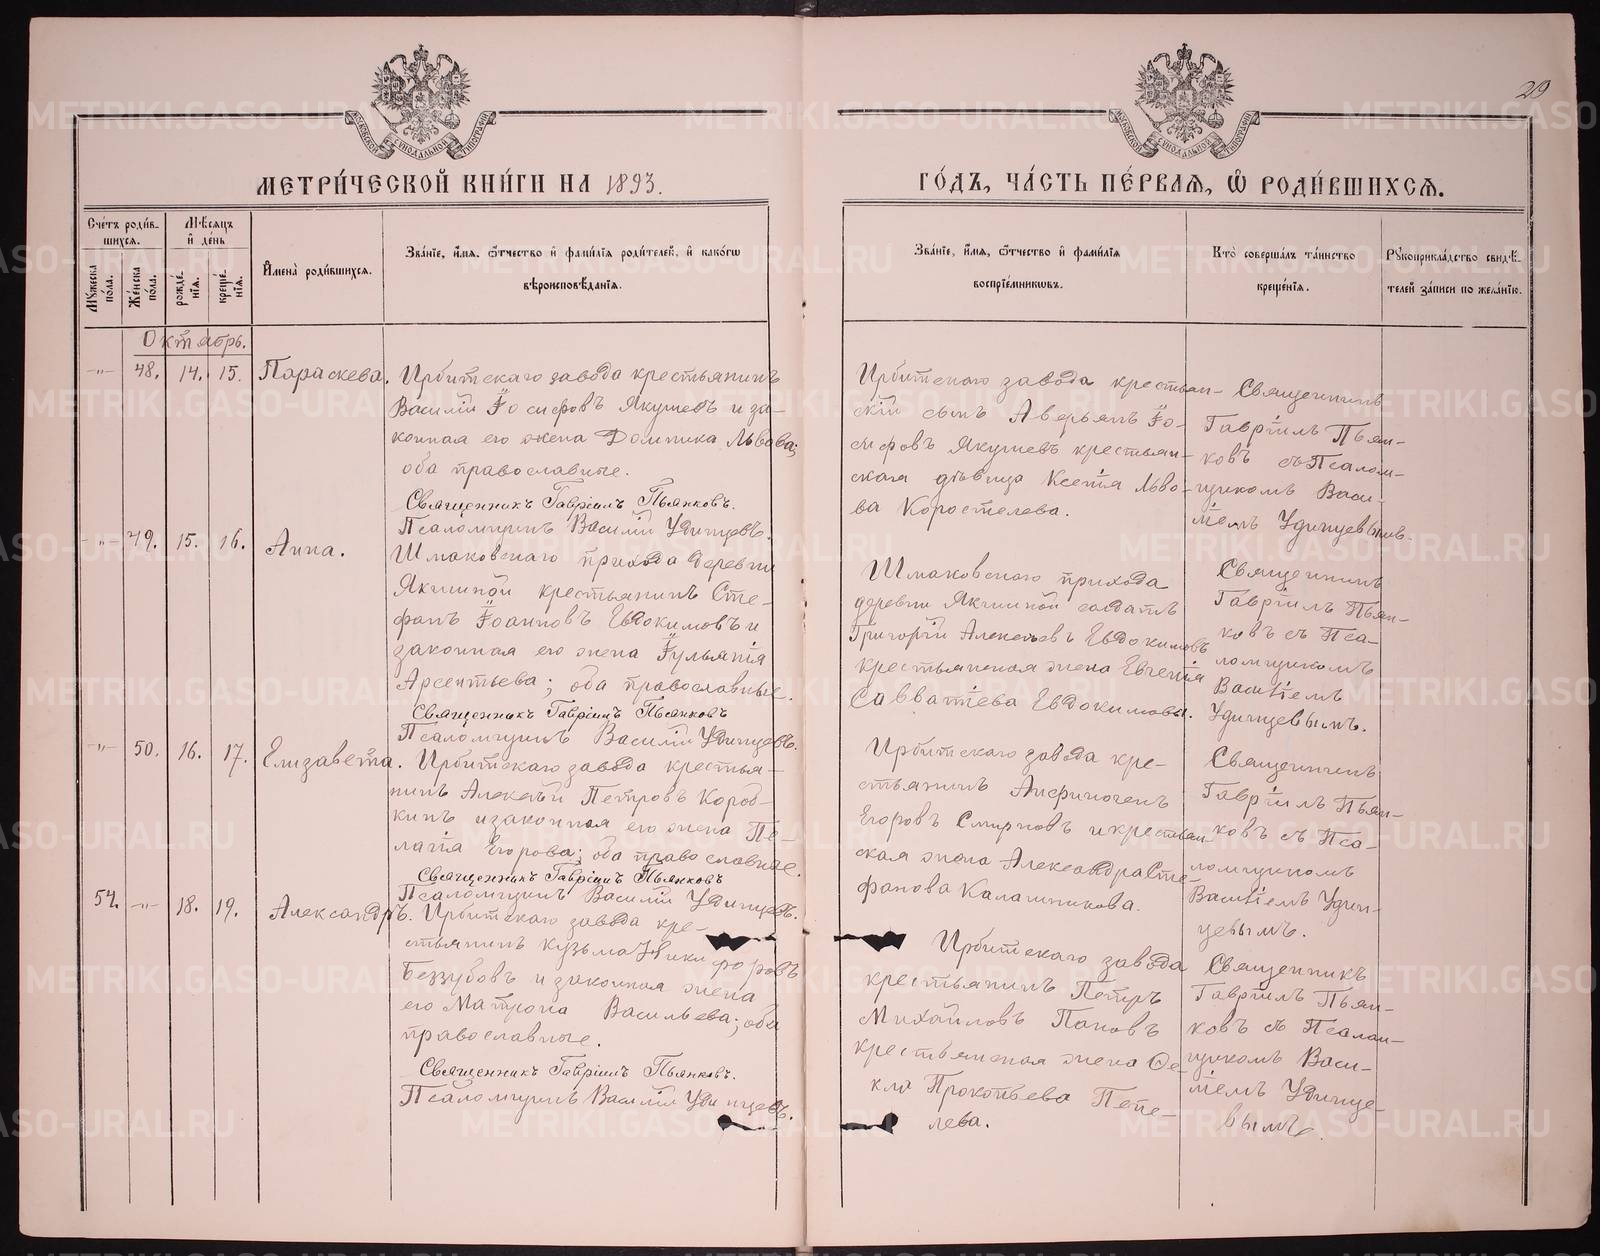 29
МЕТРИ́ЧЕСКОЙ КНИ́ГИ НА 1893.
ГО́ДЪ, ЧА́СТЬ ПЕ́РВАЯ, Ѡ РОДИ́ВШИХСЯ.
Сче́тъ роди́в-
шихся.
Мѣ́сяцъ
и де́нь
Му́жеска по́ла.
Же́нска по́ла.
рожде́нія.
креще́нія.
Имена̀ роди́вшихся.
Зва́ніе, и́мя, ѻ҆́тчество и фами́лія роди́телей, и како́гѡ
вѣроисповѣ́данія.
Зва́ніе, и́мя, ѻ҆́тчество и фами́лія
воспріе́мниковъ.
Кто̀ соверша́лъ та́инство
креще́нія.
Рꙋкоприкла́дство свидѣ́-
телей за́писи по жела́нію.
Октябрь.
-"- 48. 14. 15. Параскева.
Ирбитскаго завода крестьянинъ
Василій Іосифовъ Якушевъ и за-
конная его жена Домника Львова;
оба православные.
Священникъ Гавріилъ Пьянковъ.
Псаломщикъ Василій Удинцевъ.
Ирбитскаго завода крестьян-
скій сынъ Аверьянъ Іо-
сифовъ Якушевъ крестьян-
скага дѣвица Ксенія Льво-
ва Коростелева.
Священникъ
Гавріилъ Пьян-
ковъ съ Псалом-
щикомъ Васи-
ліемъ Удинцевымъ.
-"- 49. 15. 16. Анна.
Шмаковскаго прихода деревни
Якшиной крестьянинъ Сте-
фанъ Іоанновъ Евдокимовъ и
законная его жена Іульянія
Арсентьева; оба православные.
Священникъ Гавріилъ Пьянковъ
Псаломщикъ Василій Удинцевъ.
Шмаковскаго прихода
деревни Якшиной солдатъ
Григорій Алексѣевъ Евдокимовъ
крестьянская жена Евгенія
Савватіева Евдокимовы.
Священникъ
Гавріилъ Пьян-
ковъ съ Пса-
ломщикомъ
Василіемъ
Удинцевымъ.
-"- 50. 16. 17. Елизавета.
Ирбитскаго завода крестья-
нинъ Алексѣй Петровъ Короб-
кинъ и законная его жена Пе-
лагія Егорова; оба православные.
Священникъ Гавріилъ Пьянковъ
Псаломщикъ Василій Удинцевъ.
Ирбитскаго завода кре-
стьянинъ Анфиногенъ
Егоровъ Смирновъ и крестьян-
ская жена Александра Сте-
фанова Калашникова.
Священникъ
Гавріилъ Пьян-
ковъ съ Пса-
ломщикомъ
Василіемъ Удин-
цевымъ.
54. -"- 18. 19. Александръ.
Ирбитскаго завода кре-
стьянинъ Кузьма Никифоровъ
Беззубовъ и законная жена
его Матрона Васильева; оба
православные.
Священникъ Гавріилъ Пьянковъ.
Псаломщикъ Василій Удинцевъ.
Ирбитскаго завода
крестьянинъ Петръ
Михайловъ Пановъ
крестьянская жена Ѳе-
кла Прокопьева Пепе-
лева.
Священникъ
Гавріилъ Пьян-
ковъ съ Псалом-
щикомъ Васи-
ліемъ Удинце-
вымъ.